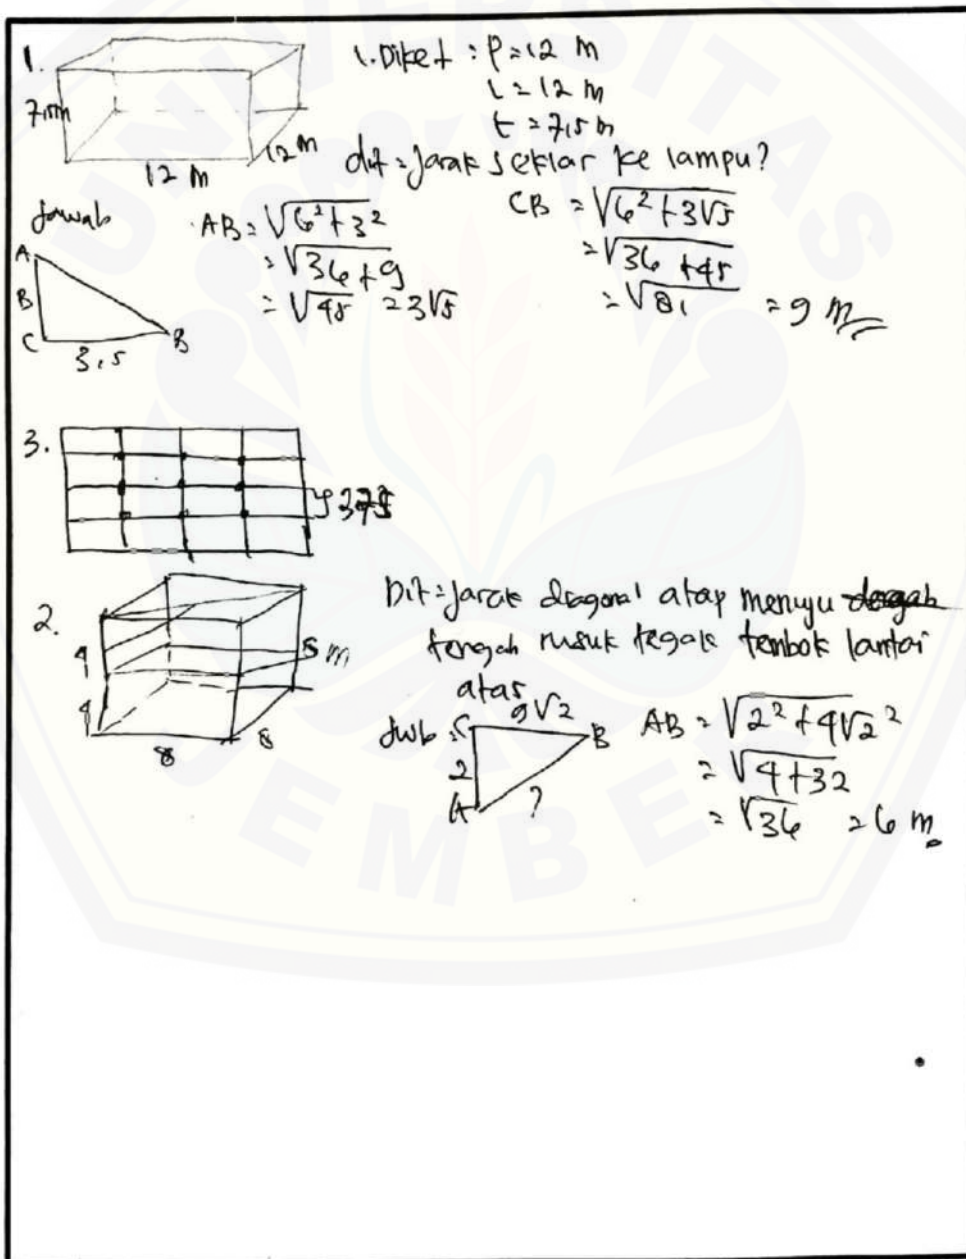 1.
7,5m
12 m
12 m
1. Diket : P = 12 m
l = 12 m
t = 7,5 m
dit = Jarak seklar ke lampu?
Jawab
A
B
C
3,5
B
AB = √6² + 3²
= √36 + 9
= √45 = 3√5
CB = √6² + 3√5
= √36 + 45
= √81 = 9 m
3.
2.
4
4
8
8
m
Dit = Jarak diagonal atap menuju
tengah rusuk tegak tembok lantai
atas
Jwb :
C
√2
B
2
A
?
AB = √2² + 4√2²
= √4 + 32
= √36 = 6 m
UNIVERSITAS
JEMBER